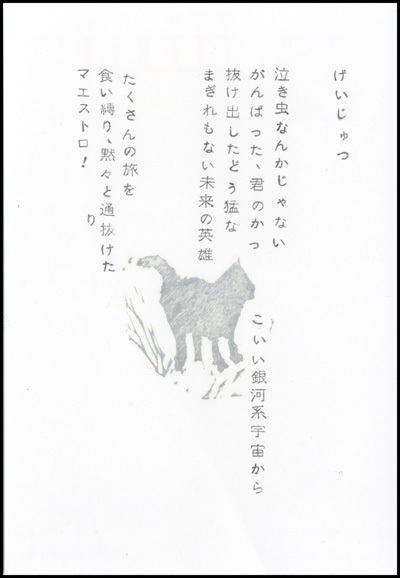 げいじゅつ
泣き虫なんかじゃない
がんばった、君のかっ
こいい銀河系宇宙から
抜け出したどう猛な
まぎれもない未来の英雄
たくさんの旅を
食い縛り、黙々と通り抜けた
マエストロ!